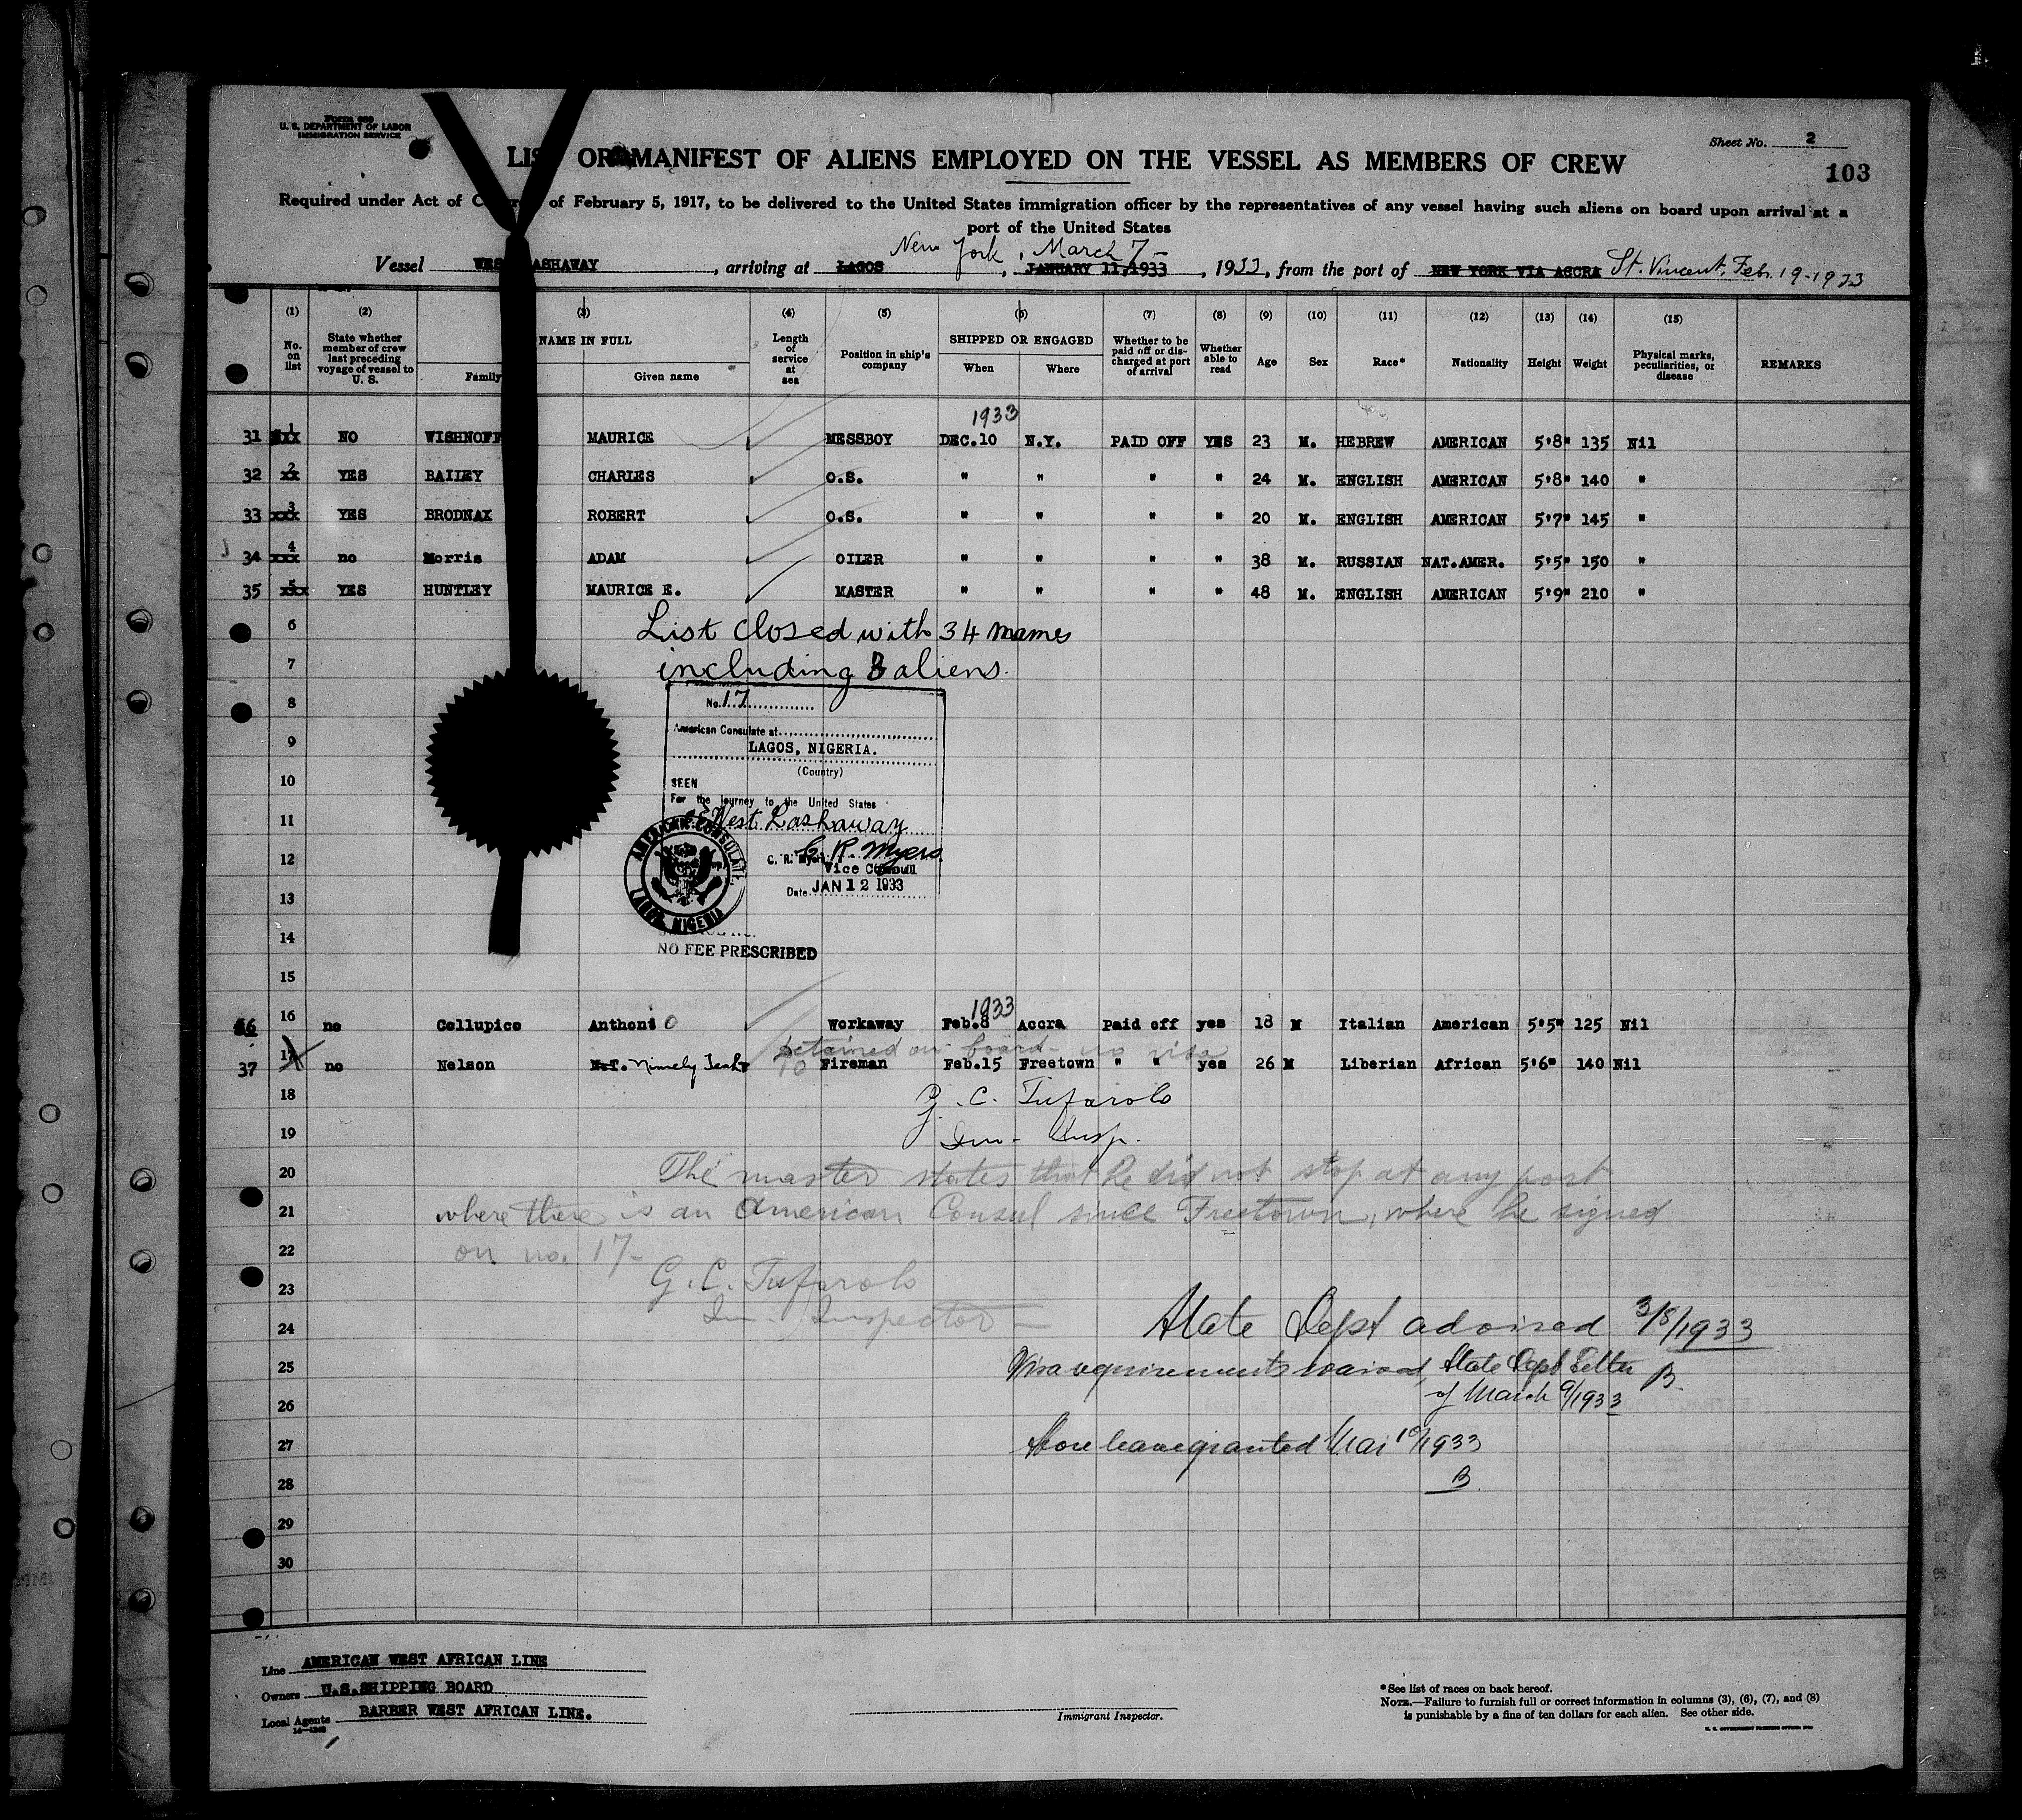 Form 689
U. S. DEPARTMENT OF LABOR
IMMIGRATION SERVICE
Sheet No. 2
103
LIST OR MANIFEST OF ALIENS EMPLOYED ON THE VESSEL AS MEMBERS OF CREW
Required under Act of Congress of February 5, 1917, to be delivered to the United States immigration officer by the representatives of any vessel having such aliens on board upon arrival at a
port of the United States
New York, March 7-
Vessel WEST LASHAWAY, arriving at LAGOS, JANUARY 11,1933, 1933, from the port of NEW YORK VIA ACCRA St. Vincent, Feb. 19-1933
(1) (2) (3) (4) (5) (6) (7) (8) (9) (10) (11) (12) (13) (14) (15)
No. on list
State whether member of crew last preceding voyage of vessel to U. S.
NAME IN FULL
Family
Given name
Length of service at sea
Position in ship's company
SHIPPED OR ENGAGED
When
Where
Whether to be paid off or discharged at port of arrival
Whether able to read
Age
Sex
Race*
Nationality
Height
Weight
Physical marks, peculiarities, or disease
REMARKS
1933
31 1 NO WISHNOFF MAURICE MESSBOY DEC.10 N.Y. PAID OFF YES 23 M. HEBREW AMERICAN 5'8" 135 Nil
32 2 YES BAILEY CHARLES O.S. " " " " 24 M. ENGLISH AMERICAN 5'8" 140 "
33 3 YES BRODNAX ROBERT O.S. " " " " 20 M. ENGLISH AMERICAN 5'7" 145 "
34 4 no Morris ADAM OILER " " " " 38 M. RUSSIAN NAT.AMER. 5'5" 150 "
35 5 YES HUNTLEY MAURICE E. MASTER " " " " 48 M. ENGLISH AMERICAN 5'9" 210 "
6 List closed with 34 names
7 including 3 aliens.
8 No. 17
American Consulate at
9 LAGOS, NIGERIA.
(Country)
10 SEEN
For the Journey to the United States
11 West Lashaway
12 C. R. Myers
C. R. Myers
Vice Consul
Date JAN 12 1933
AMERICAN CONSULATE, LAGOS, NIGERIA
13
14
NO FEE PRESCRIBED
15
1933
36 16 no Collupico Anthoni o Workaway Feb.8 Accra Paid off yes 18 M Italian American 5'5" 125 Nil
Detained on board - no visa
37 17 no Nelson N.T. Nimely 10 Fireman Feb.15 Freetown " " yes 26 M Liberian African 5'6" 140 Nil
18 G. C. Tufarolo
19 Im. Insp.
20 The master states that he did not stop at any port
21 where there is an American Consul since Freetown, where he signed
22 on no. 17-
23 G. C. Tufarolo
Im. Inspector
24 State Dept advised 3/8/1933
25 Visa requirements waived, State Dept Letter
of March 9/1933 B.
26
27 Shore leave granted Mar 10/1933
28 B
29
30
Line AMERICAN WEST AFRICAN LINE
Owners U.S.SHIPPING BOARD
Local Agents BARBER WEST AFRICAN LINE.
Immigrant Inspector.
*See list of races on back hereof.
NOTE.—Failure to furnish full or correct information in columns (3), (6), (7), and (8)
is punishable by a fine of ten dollars for each alien. See other side.